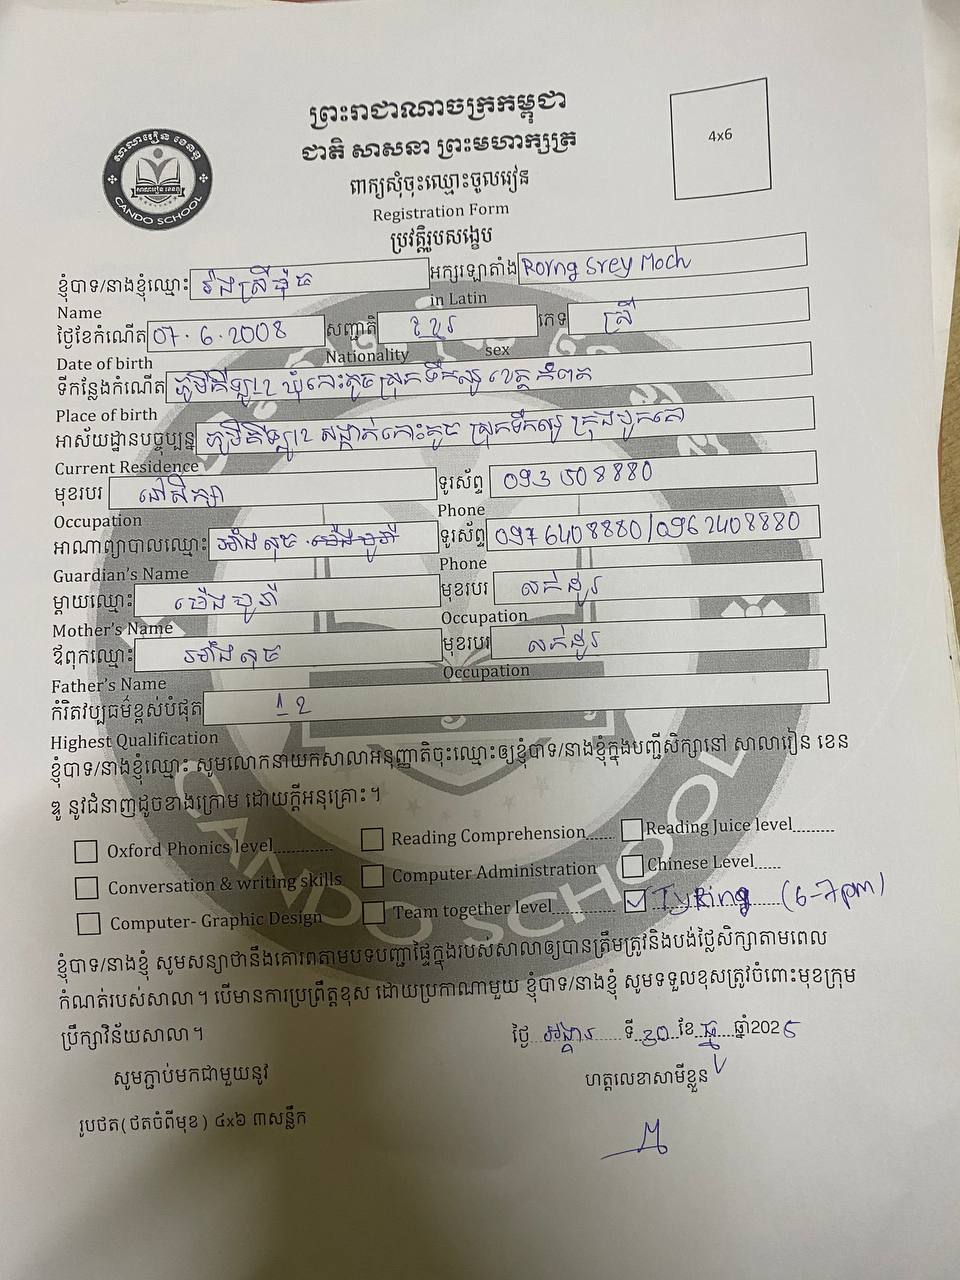 ព្រះរាជាណាចក្រកម្ពុជា
ជាតិ សាសនា ព្រះមហាក្សត្រ
សាលារៀន ខេនឌូ
CANDO SCHOOL
4x6
ពាក្យសុំចុះឈ្មោះចូលរៀន
Registration Form
ប្រវត្តិរូបសង្ខេប
ខ្ញុំបាទ/នាងខ្ញុំឈ្មោះ រ៉ង ស្រីម៉ុច អក្សរឡាតាំង Rorng Srey Moch
Name in Latin
ថ្ងៃខែកំណើត 07.6.2008 សញ្ជាតិ ខ្មែរ ភេទ ស្រី
Date of birth Nationality sex
ទីកន្លែងកំណើត ភូមិគីឡូ12 ឃុំកោះតូច ស្រុកទឹកឈូ ខេត្ត កំពត
Place of birth
អាស័យដ្ឋានបច្ចុប្បន្ន ភូមិគីឡូ12 សង្កាត់កោះតូច ស្រុកទឹកឈូ ក្រុងបូកគោ
Current Residence
មុខរបរ នៅសិក្សា ទូរស័ព្ទ 093 508880
Occupation Phone
អាណាព្យាបាលឈ្មោះ ទូរស័ព្ទ 0976408880/0962408880
Guardian's Name Phone
ម្តាយឈ្មោះ មុខរបរ លក់ដូរ
Mother's Name Occupation
ឪពុកឈ្មោះ មុខរបរ លក់ដូរ
Father's Name Occupation
កំរិតវប្បធម៌ខ្ពស់បំផុត 12
Highest Qualification
ខ្ញុំបាទ/នាងខ្ញុំឈ្មោះ សូមលោកនាយកសាលាអនុញ្ញាតិចុះឈ្មោះឲ្យខ្ញុំបាទ/នាងខ្ញុំក្នុងបញ្ជីសិក្សានៅ សាលារៀន ខេន
ឌូ នូវជំនាញដូចខាងក្រោម ដោយក្តីអនុគ្រោះ។
Oxford Phonics level............ Reading Comprehension...... Reading Juice level........
Conversation & writing skills Computer Administration Chinese Level.....
Computer- Graphic Design Team together level............ Typing (6-7pm)
ខ្ញុំបាទ/នាងខ្ញុំ សូមសន្យាថានឹងគោរពតាមបទបញ្ជាផ្ទៃក្នុងរបស់សាលាឲ្យបានត្រឹមត្រូវនិងបង់ថ្លៃសិក្សាតាមពេល
កំណត់របស់សាលា។ បើមានការប្រព្រឹត្តខុស ដោយប្រកាណាមួយ ខ្ញុំបាទ/នាងខ្ញុំ សូមទទួលខុសត្រូវចំពោះមុខក្រុម
ប្រឹក្សាវិន័យសាលា។
ថ្ងៃ អង្គារ ទី 30 ខែ ធ្នូ ឆ្នាំ2025
សូមភ្ជាប់មកជាមួយនូវ ហត្ថលេខាសាមីខ្លួន
រូបថត(ថតចំពីមុខ) ៤x៦ ៣សន្លឹក